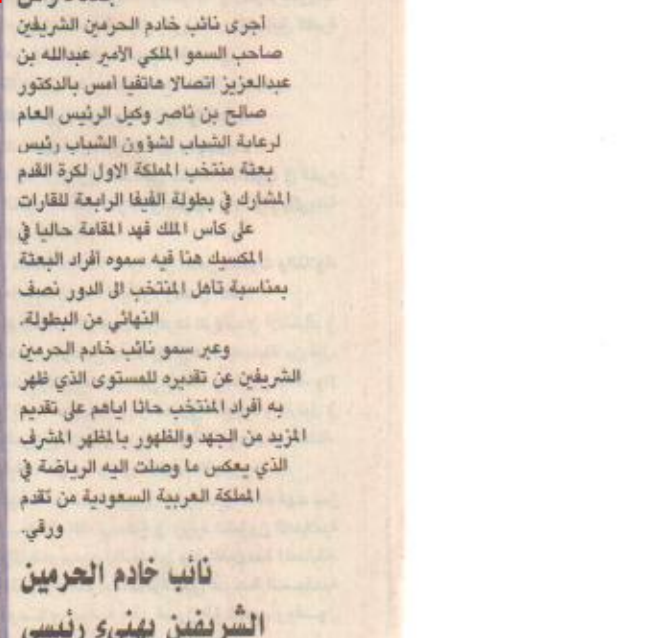 أجرى نائب خادم الحرمين الشريفين
صاحب السمو الملكي الأمير عبدالله بن
عبدالعزيز اتصالا هاتفيا أمس بالدكتور
صالح بن ناصر وكيل الرئيس العام
لرعاية الشباب لشؤون الشباب رئيس
بعثة منتخب المملكة الاول لكرة القدم
المشارك في بطولة الفيفا الرابعة للقارات
على كأس الملك فهد المقامة حاليا في
المكسيك هنا فيه سموه أفراد البعثة
بمناسبة تأهل المنتخب الى الدور نصف
النهائي من البطولة.
وعبر سمو نائب خادم الحرمين
الشريفين عن تقديره للمستوى الذي ظهر
به أفراد المنتخب حاثا اياهم على تقديم
المزيد من الجهد والظهور بالمظهر المشرف
الذي يعكس ما وصلت اليه الرياضة في
المملكة العربية السعودية من تقدم
ورقي.
نائب خادم الحرمين
الشريفين يهنىء رئيسي